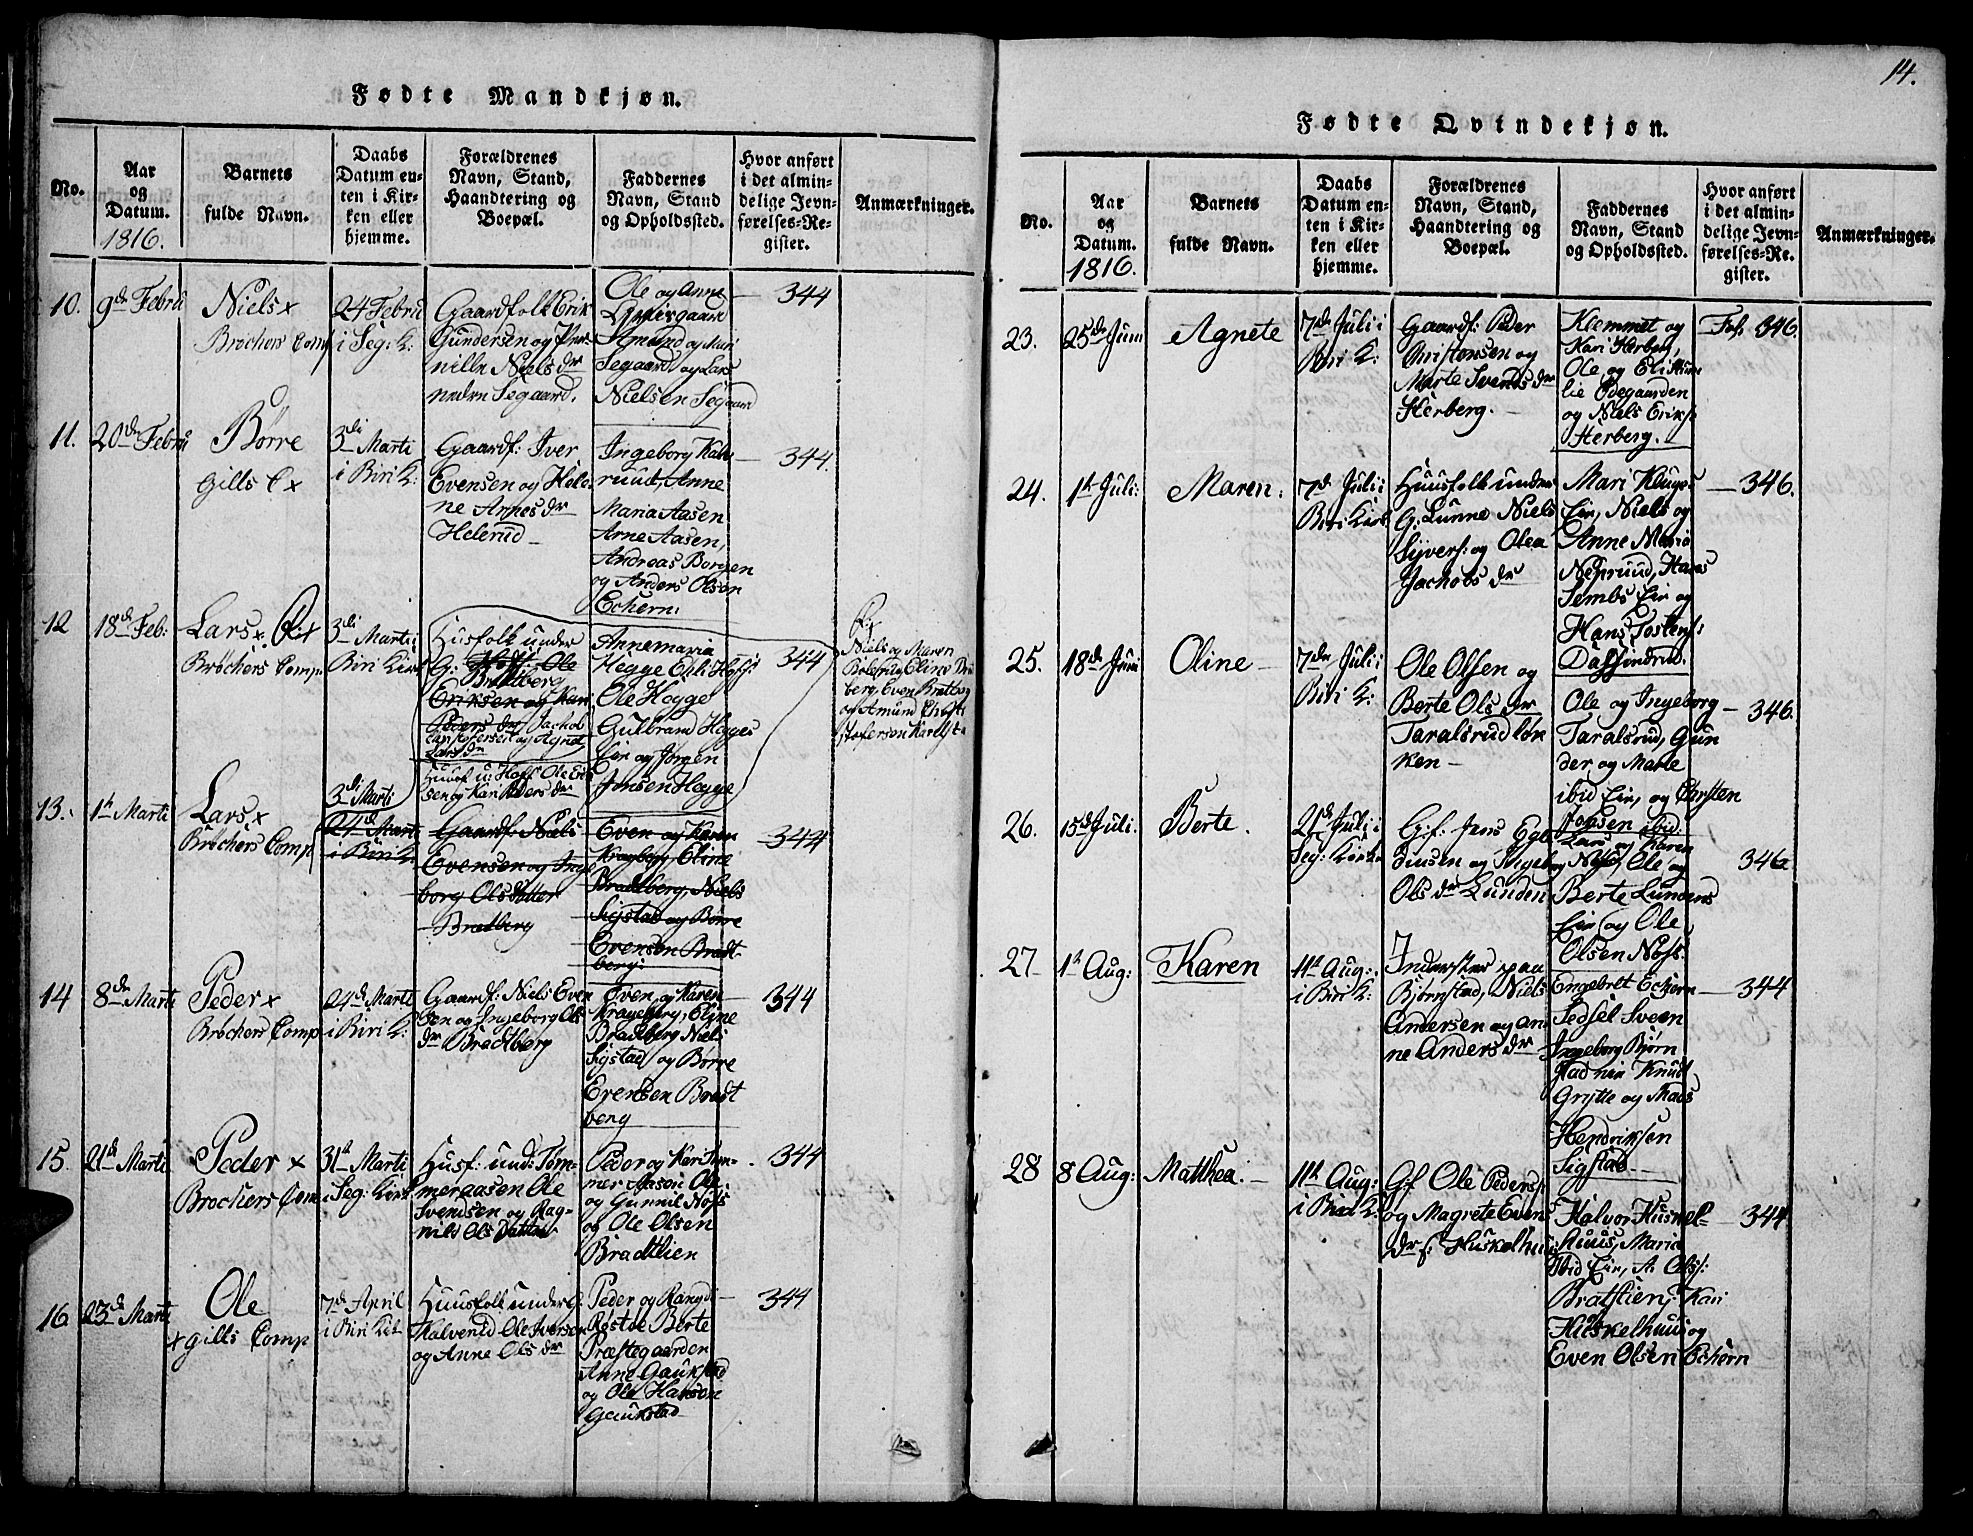 Fødte Mandkjøn.
No.
Aar
og
Datum.
1816.
Barnets
fulde Navn.
Daabs
Datum en-
ten i Kir-
ken eller
hjemme.
Forældrenes
Navn, Stand,
Haandtering og
Boepæl.
Faddernes
Navn, Stand
og Opholdssted.
Hvor anført
i det almin-
delige Jevn-
førelses-Re-
gister.
Anmærkninger.
10.
9de Febru
Niels x
Brøchers Comp
24 Febru
i Seg: K:
Gaardfolk Erik
Gundersen og Per-
nille Niels dr
nedre Segaard.
Ole og Anne
Amund og Mari
Segaard og Lars
Nielsen Segaard
344
11.
20de Febru
Børre
Gills C x
3di Marti
i Biri K:
Gaardf: Iver
Evensen og Hele-
ne Arnes dr
Helerud
Ingeborg Kal-
ruud, Anne
Maria Aasen
Arne Aasen,
Andreas Borgen
og Anders Olsen
Echern:
344.
12
18de Feb:
Lars x
Brøchers Comp
3di Marti i
Biri Kirk
Husfolk under
G: Hoff: Ole
Bradtberg
Eriksen og Kari
Peders dr Jachob
Christophersen og Agnet
Lars dr
Annemaria
Hegge Ehli Hoff:
Ole Hegge
Gulbrand Hegges
Eie og Jørgen
Jonsen Hegge
344
Niels og Maren
berg, Even Bratberg
og Amund Christ-
stofersen
13.
1te Marti
Lars x
Brøchers Comp
3di Marti
24de Marti
i Biri K:
Huusf u: Hoff Ole Erik
sen og Kari Peders dr
Gaardf: Niels
Evensen og Inge
borg Olsdotter
Bradberg
Even og Karen
Krageberg, Eline
Bradtberg, Niels
Sigstad og Børre
Evensen Bradt-
berg:
344
14
8de Marti
Peder x
Brøchers Comp
24de Marti
i Biri K:
Gaardf: Niels Even
sen og Ingeborg Ols
dr Bradtberg
Even, og Karen
Krageberg, Eline
Bradtberg Niels
Sigstad og Børre
Evensen Bradt
berg
344
15.
21de Marti
Peder x
Brochers Com
31te Marti
i Seg: Kirk
Husf: und: Tøm-
meraasen Ole
Svendsen og Rag-
nild Ols Datter
Peder og Kari Tøm-
mer Aasen Ole
og Gunnil Nøss
og Ole Olsen
Bradtlien
344
16
23de Marti
Ole
x Gills Comp
7de April
i Biri Kirk
Huusfolk under G:
Kalverud Ole Iversen
og Anne Ols dr
Peder og Rangdi
Røstøe Berte
Præstegaarden
Anne Gaukstad
og Ole Hansen
Gaukstad
344
14.
Fødte Qvindekjøn.
No.
Aar
og
Datum.
1816.
Barnets
fulde Navn.
Daabs
Datum en-
ten i Kir-
ken eller
hjemme.
Forældrenes
Navn, Stand,
Haandtering og
Boepæl.
Faddernes
Navn, Stand
og Opholdssted.
Hvor anført
i det almin-
delige Jevn-
førelses-Re-
gister.
Anmærkninger.
23.
25de Juni
Agnete
7de Juli i
Biri K:
Gaardf: Peder
Christensen og
Marte Svends dr
Herberg.
Klemmet og
Kari Herberg,
Ole og Eli
lie Ødegaarden
og Niels Eriks:
Herberg.
Fol: 346.
24.
1te Juli:
Maren:
7de Juli i
Biri Kirk
Huusfolk under
G: Lunne Niels
Syvers: og Olea
Jachobs dr
Mari Kluges
Eie, Niels og
Anne Maria
Neprud, Hans
Sembs Eie og
Hans Tostens:
Dalsindrud.
346.
25.
18de Juni
Oline
7de Juli i
Biri K:
Ole Olsen og
Berte Ols dr
Taralsrudløn
ken
Ole og Ingeborg
Taralsrud, Gun
der og Marte
ibid Eie, og Carsten
Jonsen ibid.
346.
26.
15de Juli.
Berte.
21de Juli i
Seg: Kirke
G.f. Jens Ege
diusen og Ingeborg
Ols dr Lunden
Lars og Karen
Nøss, Ole og
Berte Lundens
Eie og Ole
Olsen Nøss.
346
27
1te Aug:
Karen
11te Aug:
i Biri K:
Inderster paa
Bjørnstad, Niels
Andersen og An
ne Anders dr
Engebret Echern
Sedsel Sveen
Ingeborg Bjørn
stad nie Knudt
Grytte og Mads
Hendriksen
Sigstad
344
28
8 Aug:
Matthea.
11te Aug:
i Biri K:
Gf Ole Peders:
og Magrete Evens
dr s: Huskelhuus
Halvor Huskel-
huus, Marie
Ibid Eie, A. Ols:
Bratlien, Kari
Huskelhuus og
Even Olsen Echern
344